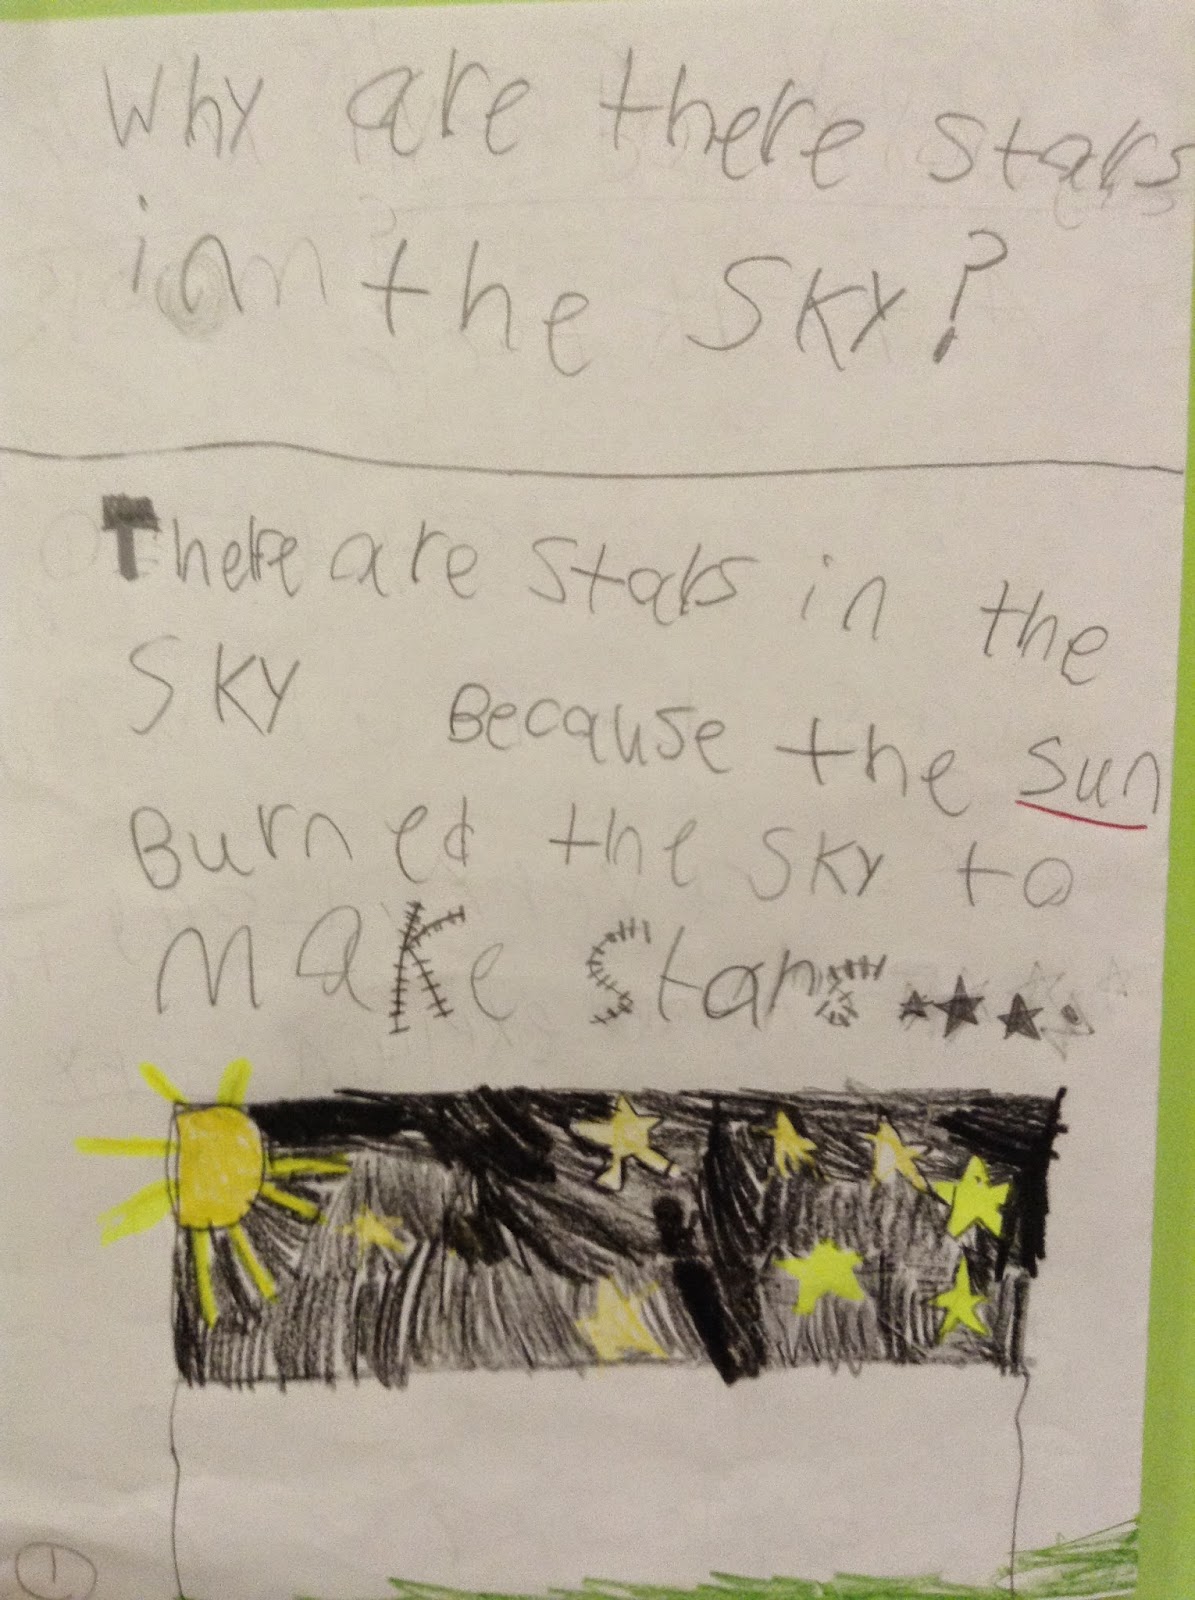 Why are there stars
in the SKY?
There are stars in the
SKY Because the sun
Burned the SKY to
MaKe Stars ★★★.
1